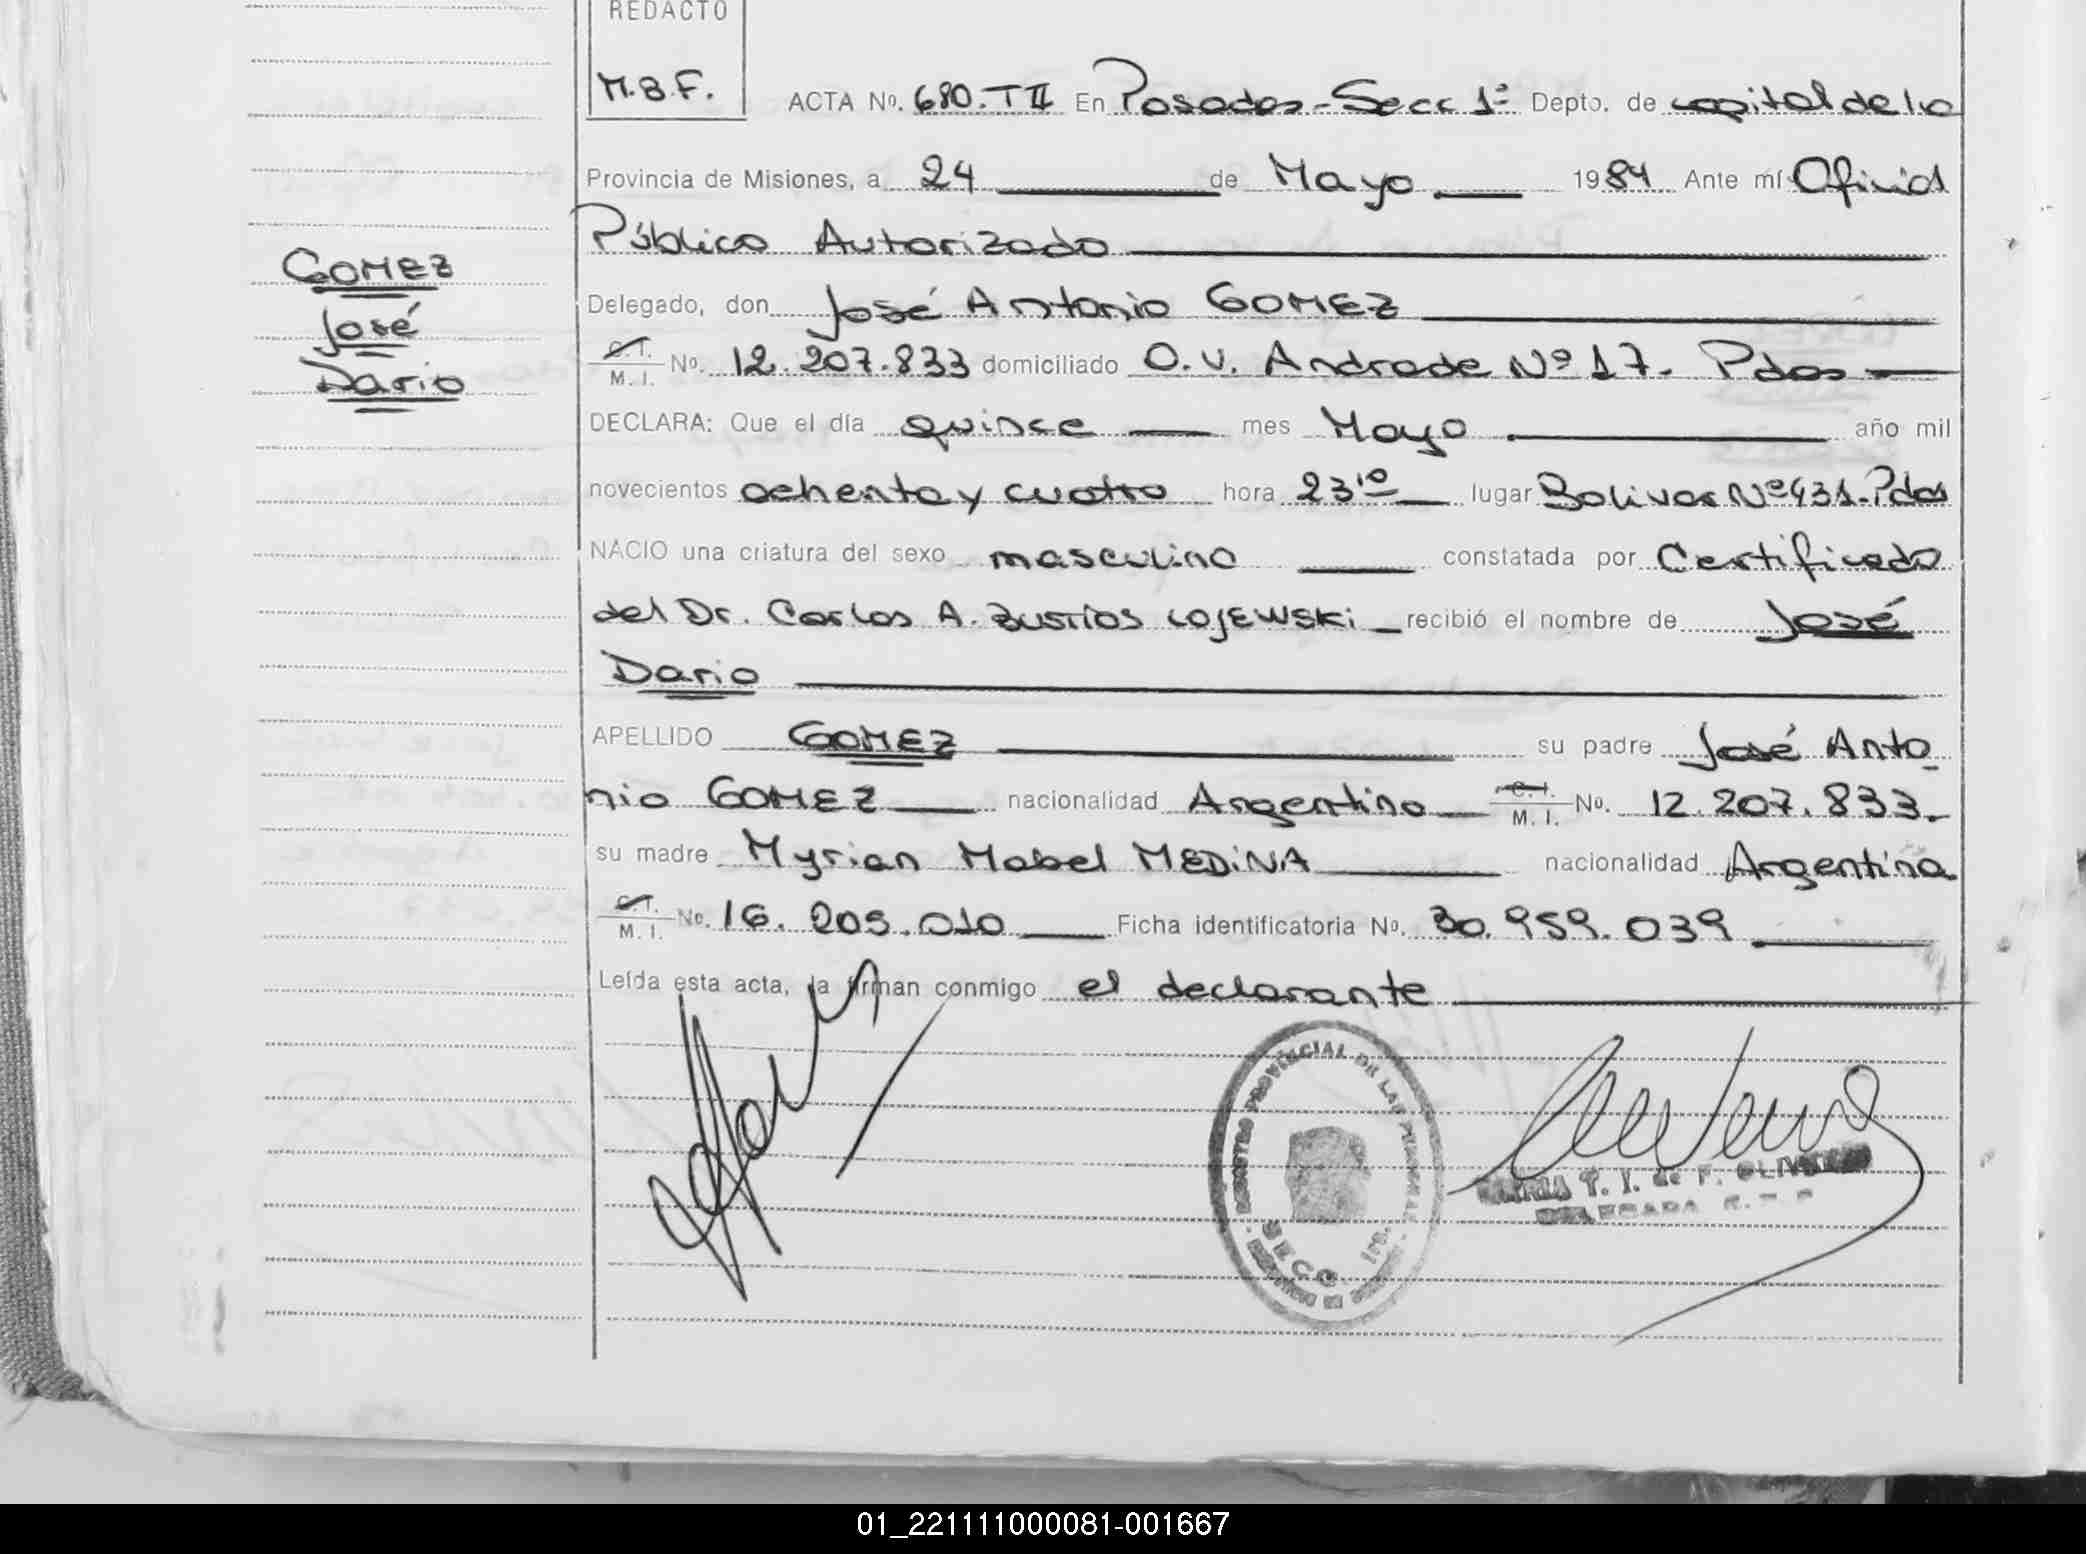 REDACTO
M.B.F.
ACTA No. 680.T II En Posadas-Secc 1ª Depto. de capital de la
Provincia de Misiones, a 24 de Mayo 1984 Ante mí Oficial
Público Autorizado
GOMEZ
José
Dario
Delegado, don José Antonio GOMEZ
C.I. M. I. No. 12.207.833 domiciliado O.V. Andrade Nº 17. Pdas
DECLARA: Que el día quince mes Mayo año mil
novecientos ochenta y cuatro hora 23¹⁰ lugar Bolivar Nº 431-Pdas
NACIO una criatura del sexo masculino constatada por Certificado
del Dr. Carlos A. LOJEWSKi recibió el nombre de José
Dario
APELLIDO GOMEZ su padre José Anto
nio GOMEZ nacionalidad Argentino C.I. M. I. No. 12.207.833.
su madre Myrian Mabel MEDiNA nacionalidad Argentina
C.I. M. I. No. 16.205.010 Ficha identificatoria No. 30.959.039
Leída esta acta, la firman conmigo el declarante
REGISTRO PROVINCIAL DE LAS PERSONAS
SECC. 1ra.
T. I. de F. OLIVEIRA
DELEGADA
01_221111000081-001667